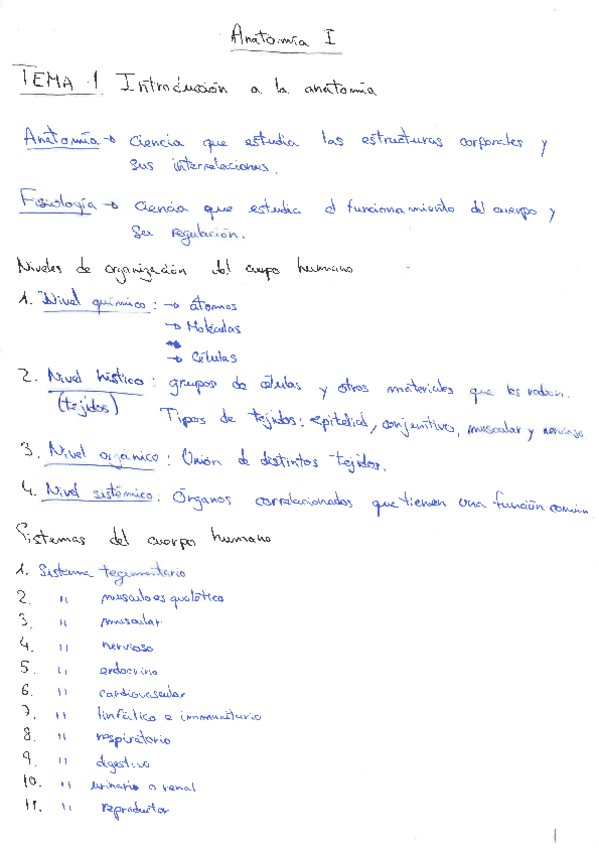 Anatomía I
TEMA 1 Introducción a la anatomía
Anatomía → Ciencia que estudia las estructuras corporales y
sus interrelaciones.
Fisiología → Ciencia que estudia el funcionamiento del cuerpo y
su regulación.
Niveles de organización del cuerpo humano
1. Nivel químico: → átomos
→ Moléculas
→ Células
2. Nivel hístico: grupos de células y otros materiales que las rodean.
(tejidos) Tipos de tejidos: epitelial, conjuntivo, muscular y nervioso
3. Nivel orgánico: Unión de distintos tejidos.
4. Nivel sistémico: Órganos correlacionados que tienen una función común
Sistemas del cuerpo humano
1. Sistema tegumentario
2. " musculoesquelético
3. " muscular
4. " nervioso
5. " endocrino
6. " cardiovascular
7. " linfático e immunitario
8. " respiratorio
9. " digestivo
10. " urinario o renal
11. " reproductor
1